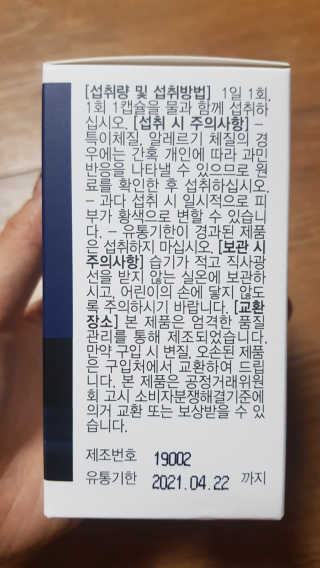 [섭취량 및 섭취방법] 1일 1회,
1회 1캡슐을 물과 함께 섭취하
십시오. [섭취 시 주의사항] –
특이체질, 알레르기 체질의 경
우에는 간혹 개인에 따라 과민
반응을 나타낼 수 있으므로 원
료를 확인한 후 섭취하십시오.
– 과다 섭취 시 일시적으로 피
부가 황색으로 변할 수 있습니
다. – 유통기한이 경과된 제품
은 섭취하지 마십시오. [보관 시
주의사항] 습기가 적고 직사광
선을 받지 않는 실온에 보관하
시고, 어린이의 손에 닿지 않도
록 주의하시기 바랍니다. [교환
장소] 본 제품은 엄격한 품질
관리를 통해 제조되었습니다.
만약 구입 시 변질, 오손된 제품
은 구입처에서 교환하여 드립
니다. 본 제품은 공정거래위원
회 고시 소비자분쟁해결기준에
의거 교환 또는 보상받을 수 있
습니다.
제조번호 19002
유통기한 2021.04.22 까지